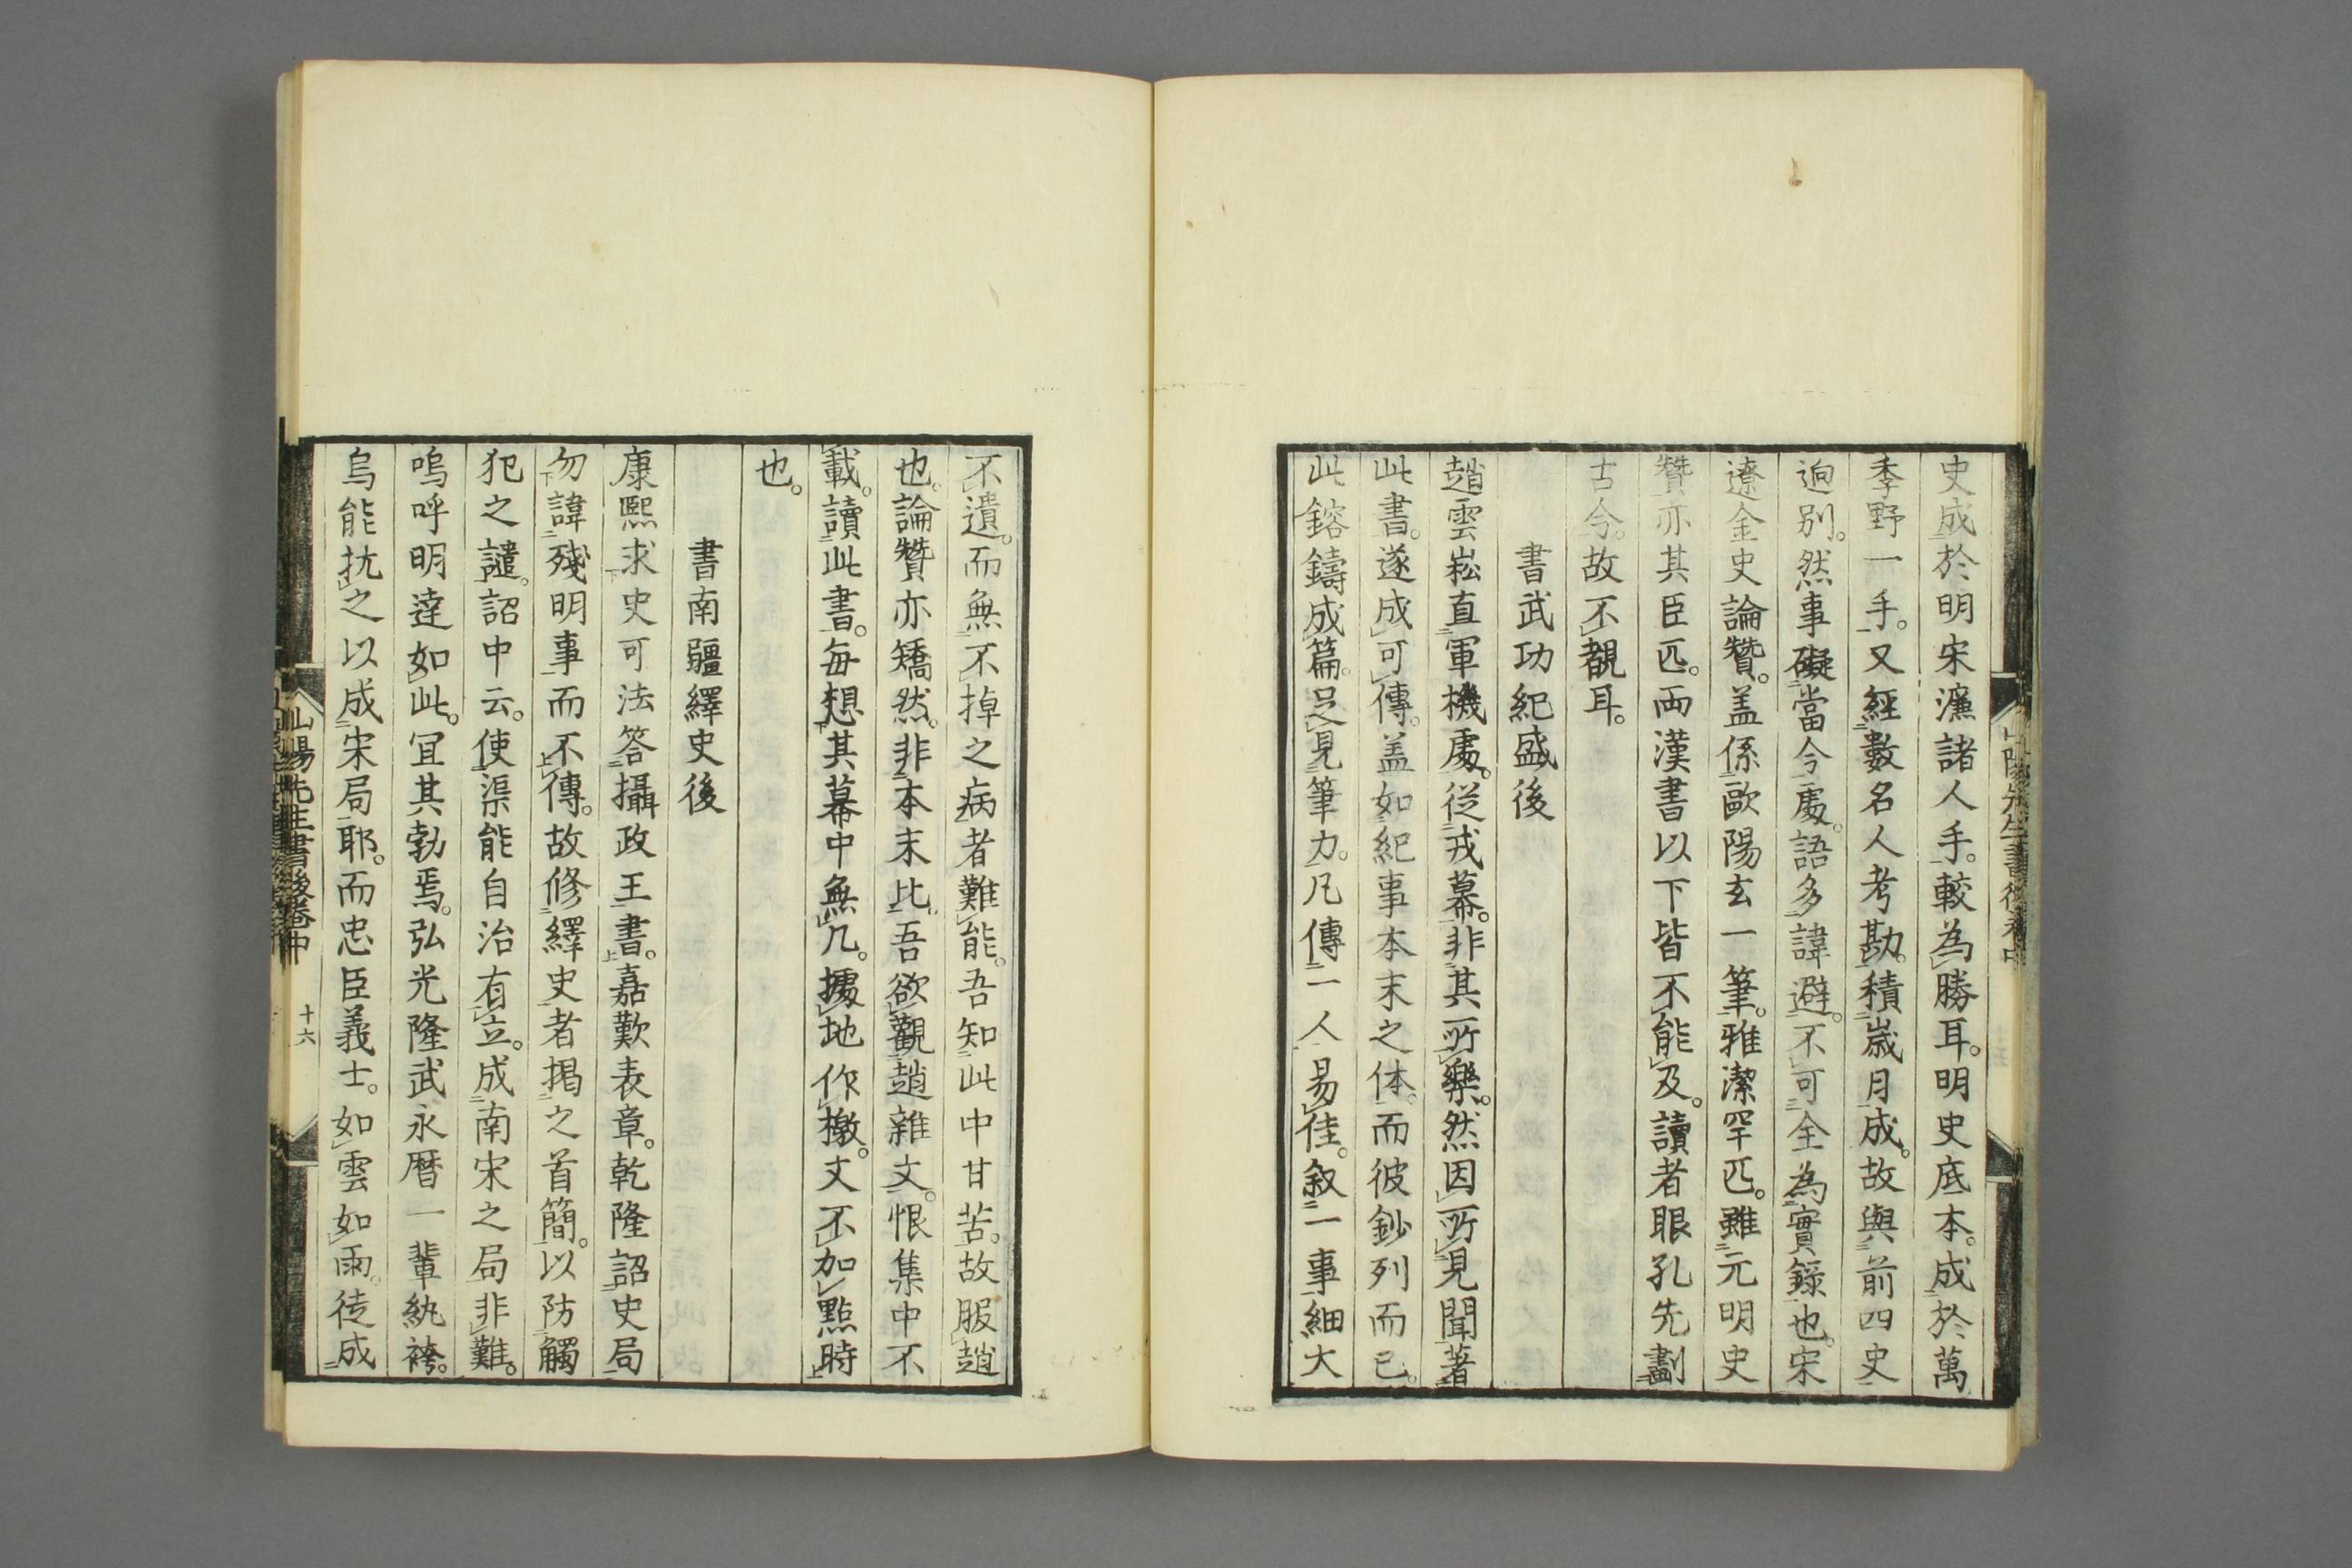 史成於明宋濂諸人手。較為勝耳。明史底本。成於萬
季野一手。又經數名人考勘。積歳月成。故與前四史
逈別。然事礙當今處。語多諱避。不可全為實録也。宋
遼金史論贊。盖係歐陽玄一筆。雅潔罕匹。雖元明史
贊亦其臣匹。兩漢書以下皆不能及。讀者眼孔先劃
古今。故不覩耳。
書武功紀盛後
趙雲崧直軍機處。從戎幕。非其所樂。然因所見聞著
此書。遂成可傳。盖如紀事本末之体。而彼鈔列而已。
此鎔鑄成篇。足見筆力。凡傳一人易佳。叙一事細大
不遺。而無不掉之病者難能。吾知此中甘苦。故服趙
也。論贊亦矯然。非本末比。吾欲觀趙雜文。恨集中不
載。讀此書。毎想其幕中無几。據地作檄。文不加點時
也。
書南疆繹史後
康熙求史可法答攝政王書。嘉歎表章。乾隆詔史局
勿諱殘明事而不傳。故修繹史者掲之首簡。以防觸
犯之譴。詔中云。使渠能自治有立。成南宋之局非難。
嗚呼明達如此。冝其勃焉。弘光隆武永暦一輩紈袴。
烏能抗之以成宋局耶。而忠臣義士。如雲如雨。徒成
山陽先生書後卷中
十六